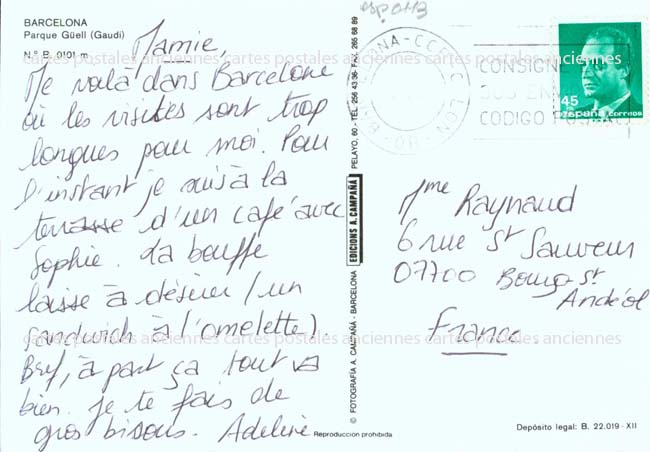 BARCELONA
Parque Güell (Gaudi)
N.º B. 0101-m
esp 0113
Mamie,
Me voilà dans Barcelone
où les visites sont trop
longues pour moi. Pour
l'instant je suis à la
terrasse d'un café avec
Sophie. La bouffe
laisse à désirer (un
sandwich à l'omelette).
Bref, à part ça tout va
bien. Je te fais de
gros bisous. Adeline
© FOTOGRAFÍA A. CAMPAÑA - BARCELONA
EDICIONS A. CAMPAÑA
PELAYO, 60 - TEL. 256 43 36 - FAX. 265 68 89
Reproducción prohibida
CONSIGNE
SUS ENV
CODIGO POSTAL
45
España correos
Mme Raynaud
6 rue St Sauveur
07700 Bourg-St
Andéol
France
Depósito legal: B. 22.019-XII
cartes postales anciennes cartes postales anciennes cartes postales anciennes
cartes postales anciennes cartes postales anciennes cartes postales anciennes